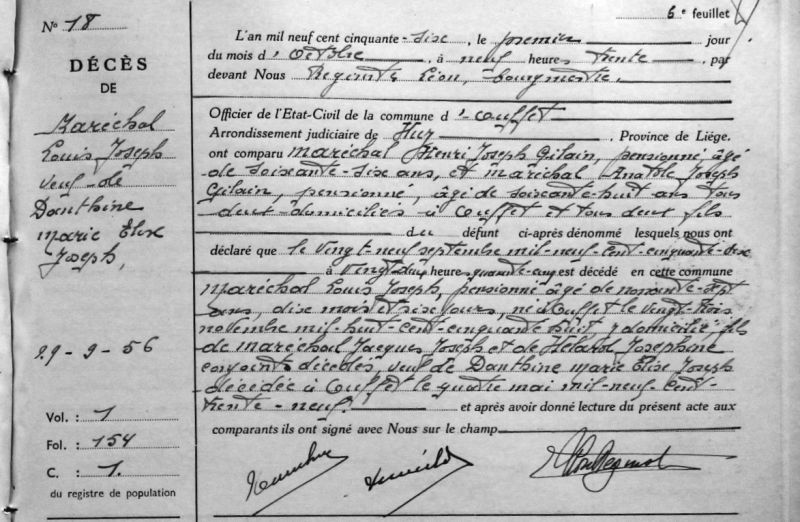 6e feuillet
No 18
DÉCÈS
DE
Maréchal
Louis Joseph
veuf de
Danthine
Marie Elise
Joseph,
29-9-56
Vol. : 1
Fol. : 154
C. : 1.
du registre de population
L'an mil neuf cent cinquante-six, le premier jour
du mois d'octobre, à neuf heures trente, par
devant Nous Léon, bourgmestre.
Officier de l'Etat-Civil de la commune d'Ouffet
Arrondissement judiciaire de Huy. Province de Liége.
ont comparu Maréchal Henri Joseph Gilain, pensionné, âgé
de soixante-six ans, et Maréchal Anatole Joseph
Gilain, pensionné, âgé de soixante-huit ans tous
deux domiciliés à Ouffet et tous deux fils
du défunt ci-après dénommé lesquels nous ont
déclaré que le vingt-neuf septembre mil-neuf-cent-cinquante-six
à vingt heures quarante-cinq est décédé en cette commune
Maréchal Louis Joseph, pensionné âgé de nonante-sept
ans, dix mois et six jours, né à Ouffet le vingt-trois
novembre mil-huit-cent-cinquante huit, y domicilié, fils
de Maréchal Jacques Joseph et de Joséphine
conjoints décédés, veuf de Danthine Marie Elise Joseph
décédée à Ouffet le quatre mai mil-neuf-cent-
trente-neuf. et après avoir donné lecture du présent acte aux
comparants ils ont signé avec Nous sur le champ